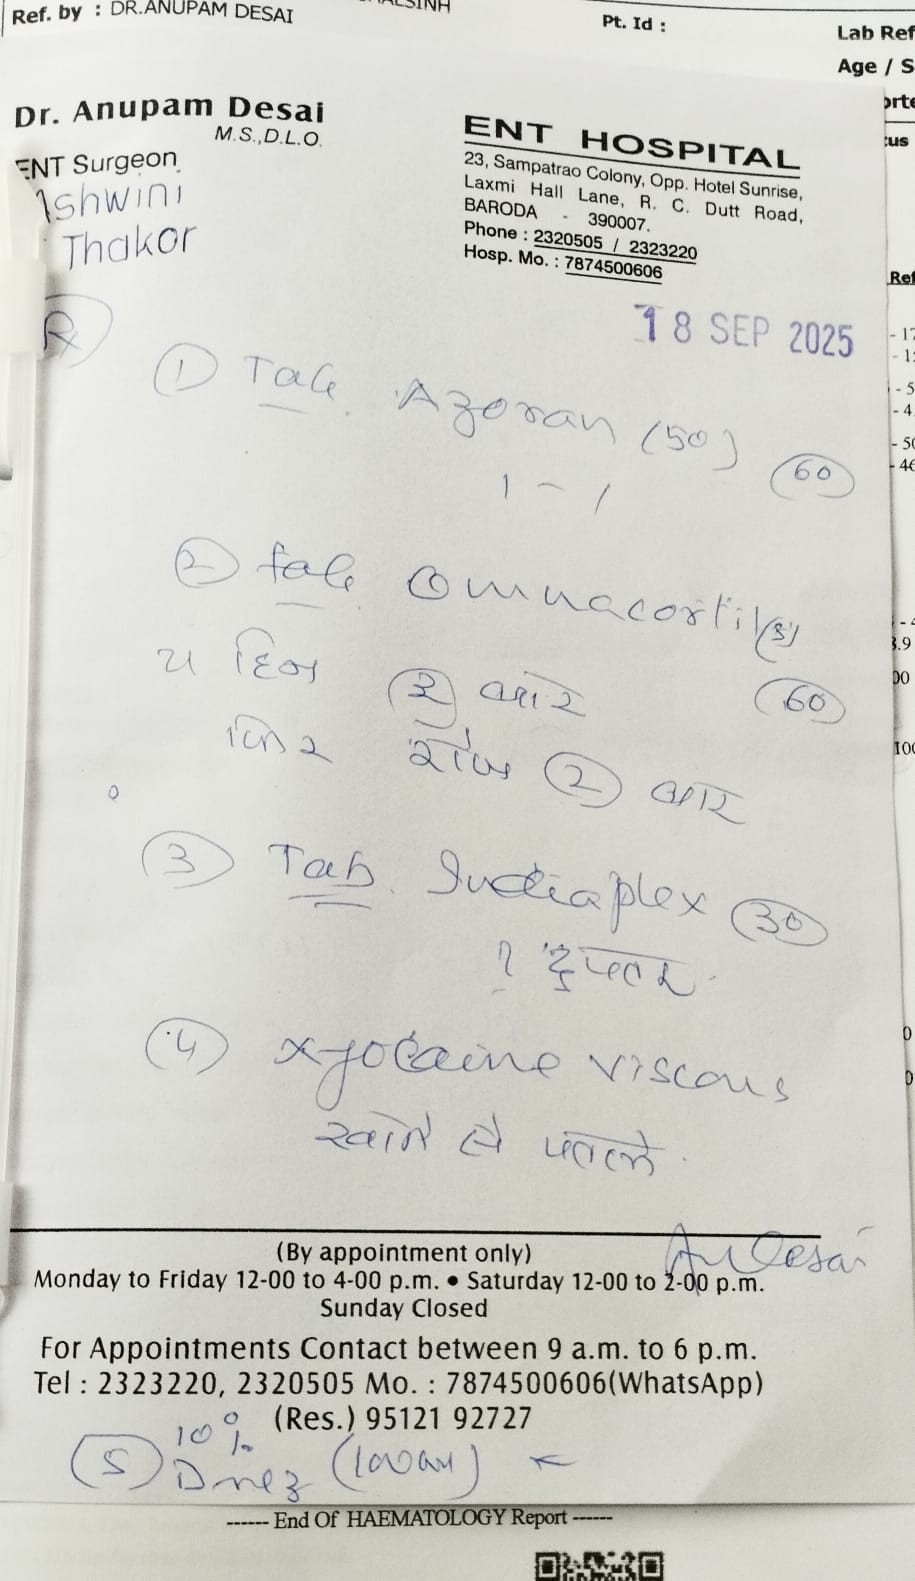 Ref. by : DR.ANUPAM DESAI
Pt. Id :
Lab Ref
Age / S
Dr. Anupam Desai
M.S.,D.L.O.
ENT Surgeon
Ashwini
Thakor
ENT HOSPITAL
23, Sampatrao Colony, Opp. Hotel Sunrise,
Laxmi Hall Lane, R. C. Dutt Road,
BARODA - 390007.
Phone : 2320505 / 2323220
Hosp. Mo. : 7874500606
18 SEP 2025
Rx
① Tab. Azoran (50) 60
1 - 1
② Tab. Omnacortil (5)
दिन बार 60
फिर रोज ② बार
③ Tab. Indiaplex 30
१ दुपहर
④ Xylocaine viscous
खाने से पहले
An Desai
(By appointment only)
Monday to Friday 12-00 to 4-00 p.m. • Saturday 12-00 to 2-00 p.m.
Sunday Closed
For Appointments Contact between 9 a.m. to 6 p.m.
Tel : 2323220, 2320505 Mo. : 7874500606(WhatsApp)
(Res.) 95121 92727
10%
------ End Of HAEMATOLOGY Report ------